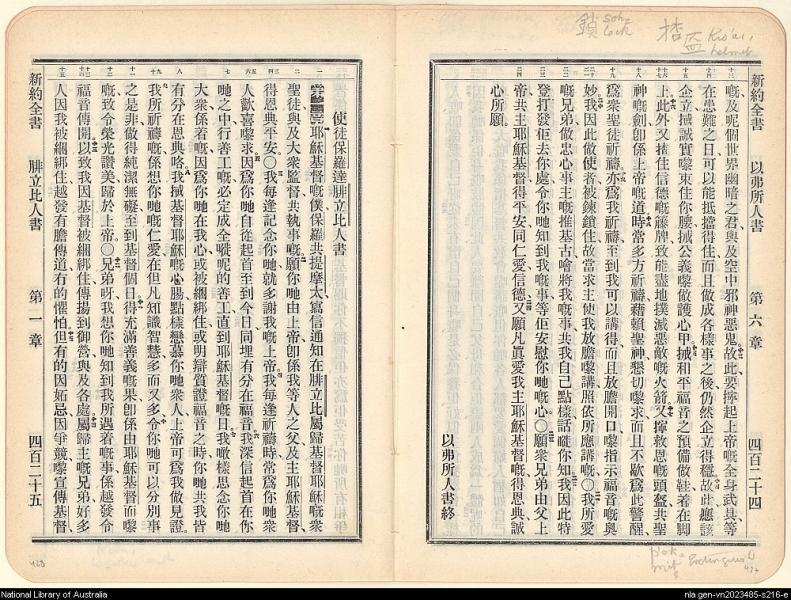 新約全書 以弗所人書 第六章 四百二十四
嘅及呢個世界幽暗之君與及空中邪神惡鬼故此要擰起上帝嘅全身武具等
在患難之日可以能抵擋得住而且做成各樣事之後仍然企立得穩故此應該
企立搣誠實嚟束住你腰搣公義嚟做護心甲搣和平福音之預備做鞋着在脚
上此外又揸住信德嘅籐牌致能盡地撲滅惡敵嘅火箭又擰救恩嘅頭盔共聖
神嘅劍卽係上帝嘅道時常多方祈禱藉賴聖神懇切嚟求而且不歇爲此警醒
爲衆聖徒祈禱亦爲我祈禱至到我可以講得而且放膽開口嚟指示福音嘅奧
妙我因此做使者被鍊鎖住故當求主使我放膽嚟講照依所應講嘅〇我所愛
嘅兄弟做忠心事主嘅推基古嚕將我嘅事共我自己點樣話哓你知我因此特
登打發佢去你處令你哋知到我嘅事等佢安慰你哋嘅心〇願衆兄弟由父上
帝共主耶穌基督得平安同仁愛信德又願凡眞愛我主耶穌基督嘅得恩典誠
心所願
以弗所人書終
使徒保羅達腓立比人書
耶穌基督嘅僕保羅共提摩太寫信通知在腓立比屬歸基督耶穌嘅衆
聖徒與及大衆監督共執事嘅願你哋由上帝卽係我等人之父及主耶穌基督
得恩典平安〇我每逢記念你哋就多謝我嘅上帝我每逢祈禱時常爲你哋衆
人歡喜嚟求因爲你哋自從起首至到今日同埋有分在福音我深信起首在你
哋之中行善工嘅必定成全嚈呢的善工直到耶穌基督嘅日我噉樣思念你哋
大衆係着嘅因爲你哋在我心或被綑綁住或明辯質證福音之時你哋共我皆
有分在恩典啥我搣基督耶穌嘅心腸點樣戀慕你哋衆人上帝可爲我做見證
我所祈禱嘅係想你哋嘅仁愛在但凡知識智慧多而又多令你哋可以分別事
之是非做得純潔無礙至到基督個日得充滿善義嘅果卽係由耶穌基督而嚟
嘅致令榮光讚美歸於上帝〇兄弟呀我想你哋知到我所遇着嘅事係越發令
福音傳開以致我因基督被綑綁住傳揚到御營與及各處屬歸主嘅兄弟好多
人因我被綑綁住越發有膽傳道有的嘅懼怕但有的因妬忌因爭競嚟宣傳基督
新約全書 腓立比人書 第一章 四百二十五
鎖 lock
盔 helmet
National Library of Australia
nla.gen-vn2023485-s216-e